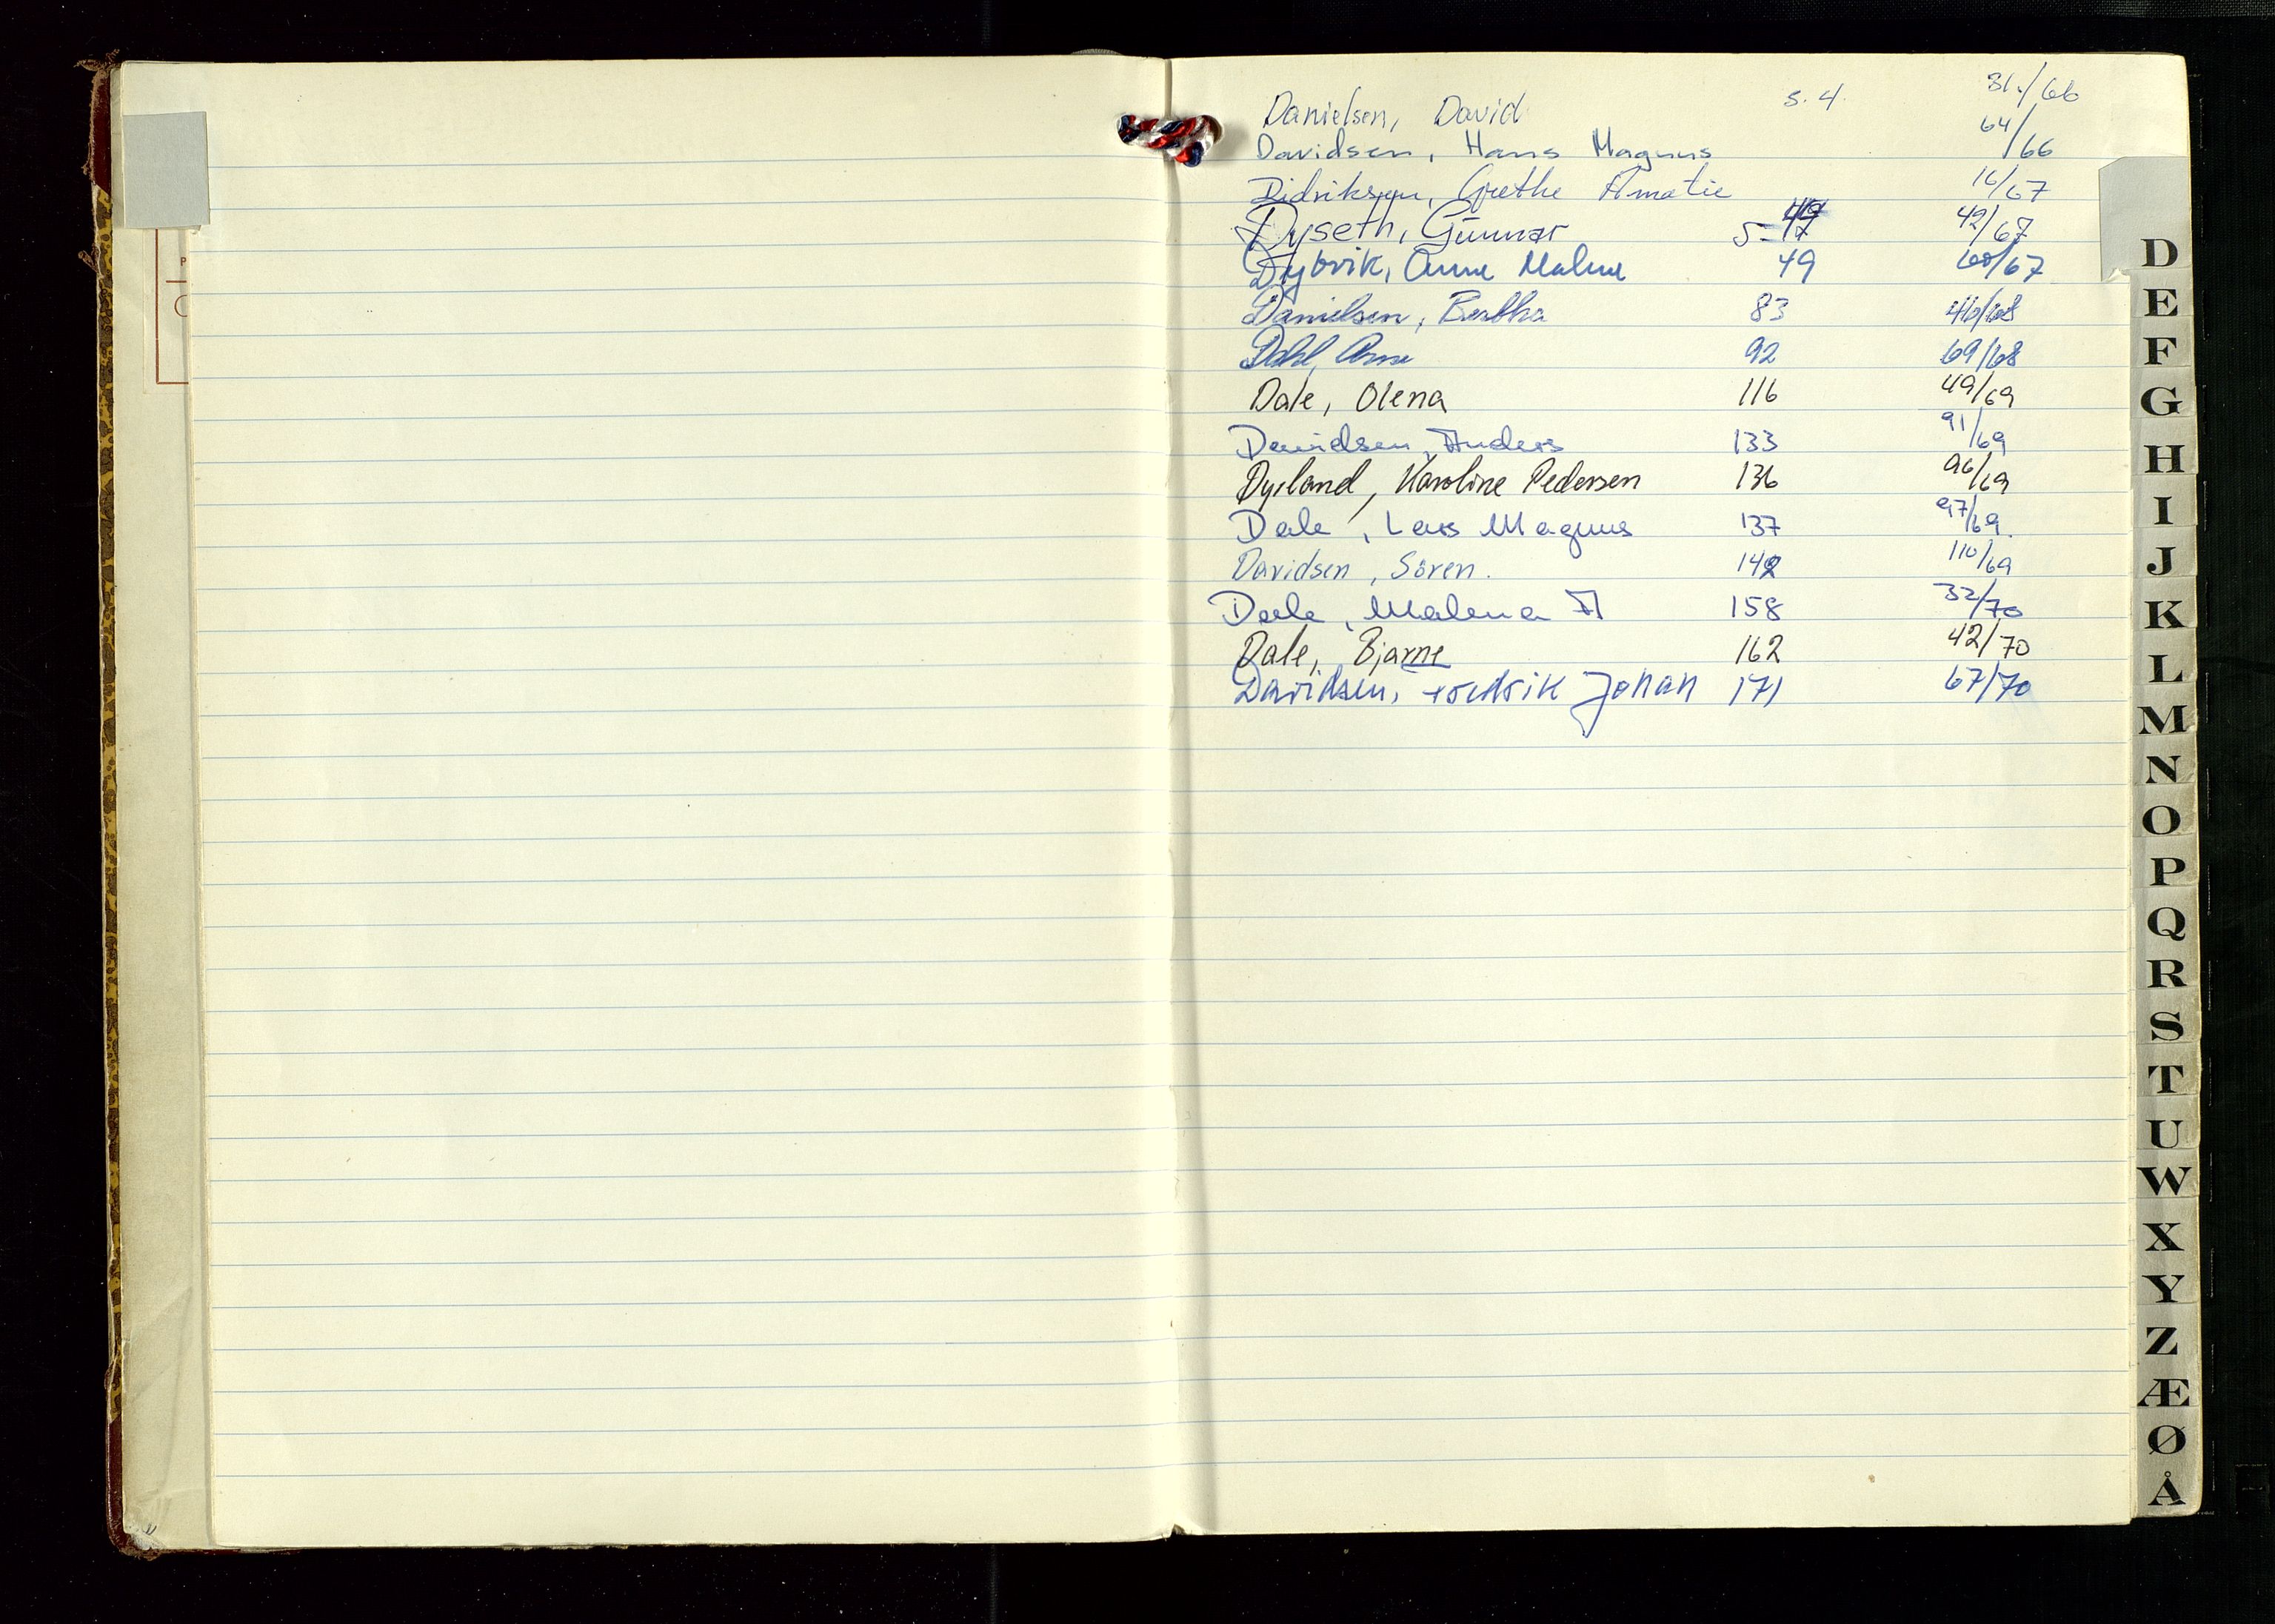 Danielsen, David s. 4. 31./66
Davidsen, Hans Magnus 64/66
Didriksen, Grethe Amalie 16/67
Dyseth, Gunnar s- 47 49/67
Dybvik, Anne Malene 49 60/67
Danielsen, Bertha 83 46/68
Dahl, Arne 92 69/68
Dale, Olena 116 49/69
Davidsen, Anders 133 91/69
Dysland, Karoline Pedersen 136 96/69
Dale, Lars Magnus 137 97/69.
Davidsen, Sören. 142 110/69
Dale, Malena A 158 32/70
Dale, Bjarne 162 42/70
Davidsen, Fredrik Johan 171 67/70
D
E
F
G
H
I
J
K
L
M
N
O
P
Q
R
S
T
U
W
X
Y
Z
Æ
Ø
Å